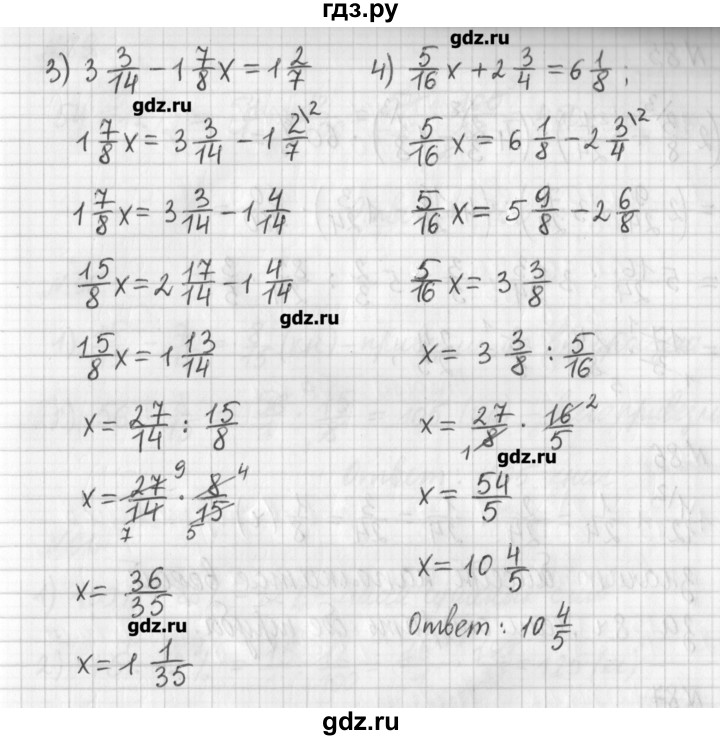 гдз.ру
3) 3 3/14 − 1 7/8 x = 1 2/7
gdz.ru
1 7/8 x = 3 3/14 − 1 2/7 \2
1 7/8 x = 3 3/14 − 1 4/14
15/8 x = 2 17/14 − 1 4/14
gdz.ru
15/8 x = 1 13/14
x = 27/14 : 15/8
x = 27/14 · 8/15 9 4 7 5
x = 36/35
gdz.ru
x = 1 1/35
gdz.ru
4) 5/16 x + 2 3/4 = 6 1/8 ;
5/16 x = 6 1/8 − 2 3/4 \2
5/16 x = 5 9/8 − 2 6/8
5/16 x = 3 3/8
x = 3 3/8 : 5/16
x = 27/8 · 16/5 1 2
gdz.ru
x = 54/5
x = 10 4/5
Ответ: 10 4/5
gdz.ru